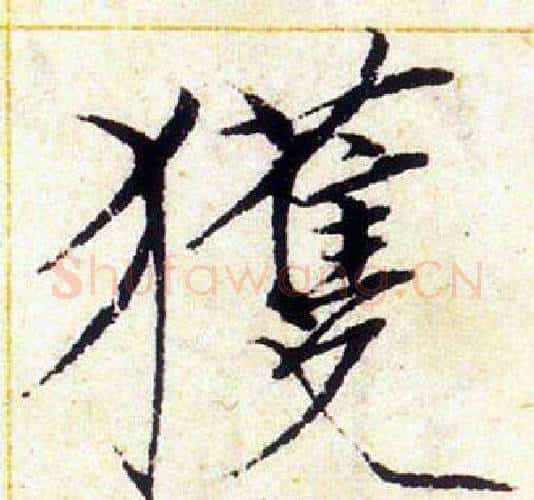 獲
Shufawang.CN